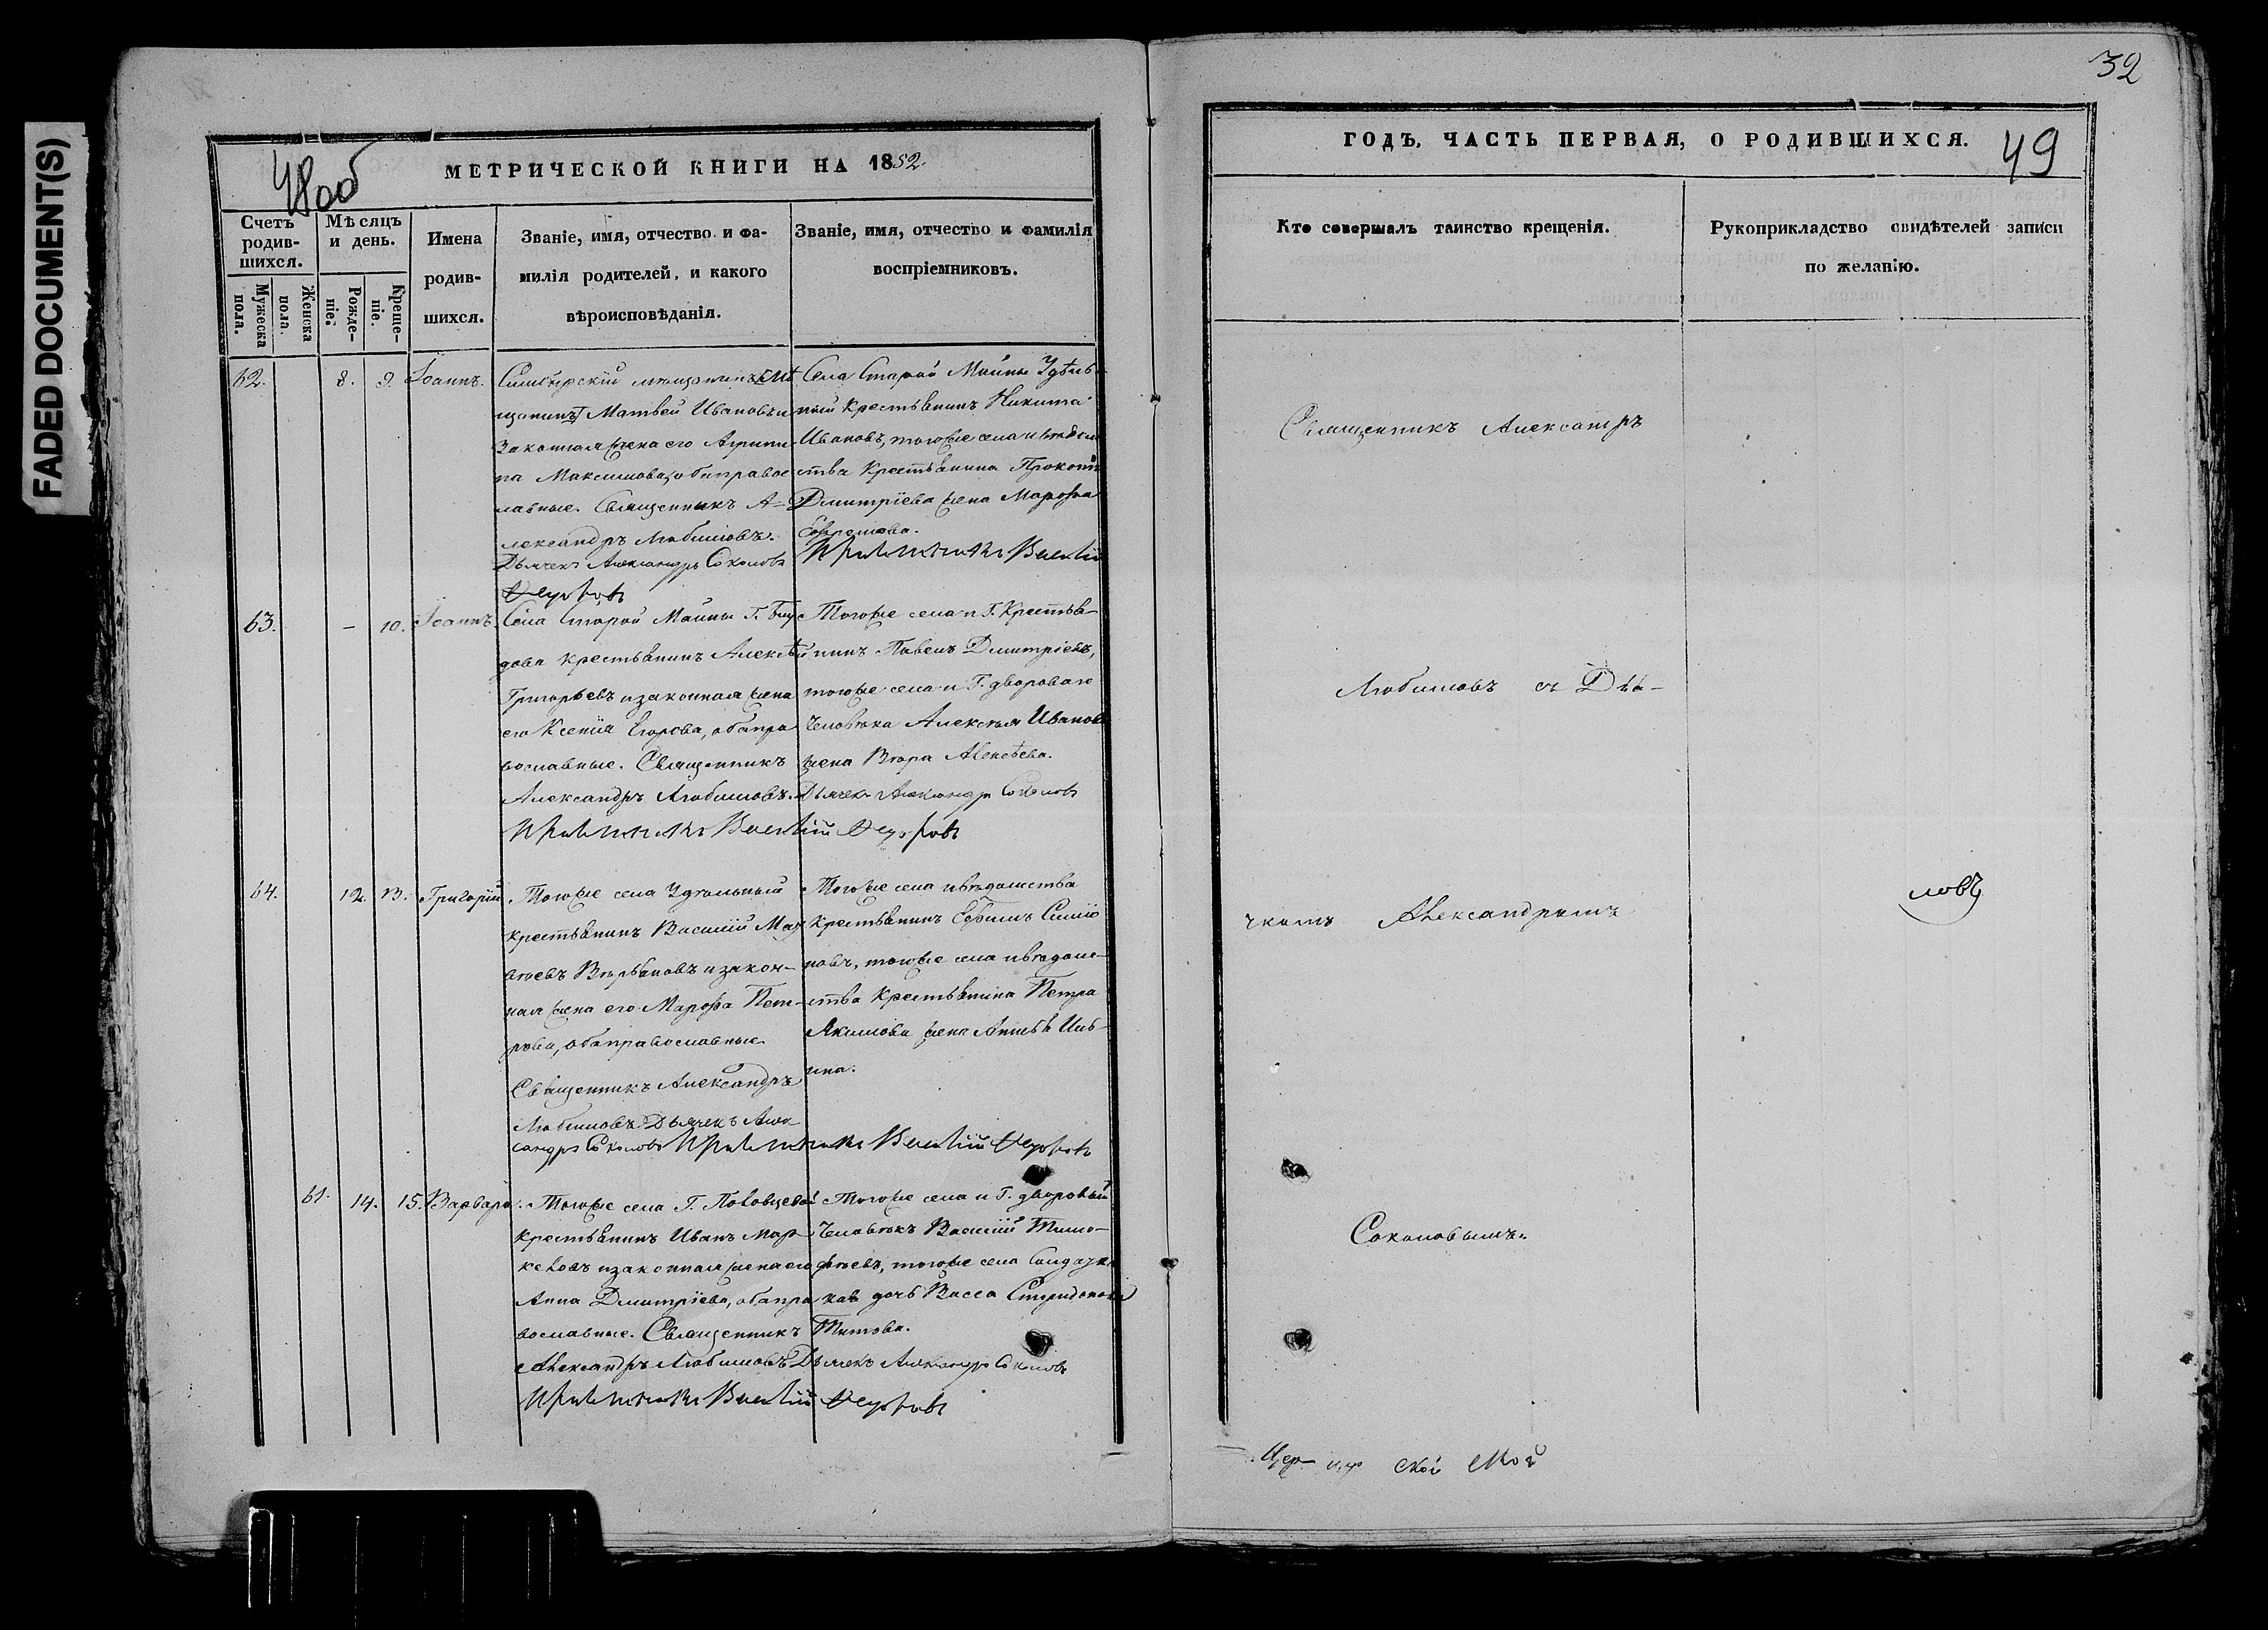 FADED DOCUMENT(S)
48 об
МЕТРИЧЕСКОЙ КНИГИ НА 1852.
Счетъ родив-шихся.
Мѣсяцъ и день.
Имена родив-шихся.
Званіе, имя, отчество и фа-
милія родителей, и какого
вѣроисповѣданія.
Званіе, имя, отчество и фамилія
воспріемниковъ.
Мужеска пола.
Женска пола.
Рожде-ніе.
Креще-ніе.
62. 8. 9. Іоаннъ.
Симбирскій мѣщанинъ
щанинъ Матвей Ивановъ и
Законная жена его Агрипи-
на Максимова, оба правос
лавные. Священникъ А-
лександръ Любимовъ.
Дьячекъ Александръ Соколовъ
Села Старой Майны Удѣль-
ный Крестьянинъ Никита
Ивановъ, тогоже села и вѣдом
ства Крестьянина Прокопія
Дмитріева жена Марфа
Ефремова.
63. – 10. Іоаннъ.
Села Старой Майны Г.
дова крестьянинъ Алексѣй
Григорьевъ и законная жена
его Ксенія Егорова, оба пра
вославные. Священникъ
Александръ Любимовъ.
Тогоже села и Г. Крестья-
нинъ Павелъ Дмитріевъ,
тогоже села и Г. двороваго
Человѣка Алексѣя Иванова
жена Вѣра Алексѣева.
Дьячекъ Александръ Соколовъ
64. 12. 13. Григорій
Тогоже села Удѣльный
крестьянинъ Василій Мат
вѣевъ и закон-
ная жена его Марфа Пет-
рова, оба православные.
Священникъ Александръ
Любимовъ Дьячекъ Алек
сандръ Соколовъ
Тогоже села и вѣдомства
Крестьянинъ Ефимъ Симіо
новъ, тогоже села и вѣдом-
ства Крестьянина Петра
Якимова жена
ина.
61. 14. 15. Варвара.
Тогоже села Г. Половцевой
крестьянинъ Иванъ Мар
келовъ и законная жена его
Анна Дмитріева, оба пра
вославные. Священникъ
Александръ Любимовъ
Тогоже села и Г. дворовый
Человѣкъ Василій Тимо-
фѣевъ, тогоже села Солдатс
кая дочь Васса Спиридонова
Титова.
Дьячекъ Александръ Соколовъ
32
ГОДЪ, ЧАСТЬ ПЕРВАЯ, О РОДИВШИХСЯ.
49
Кто совершалъ таинство крещенія.
Рукоприкладство свидѣтелей записи
по желанію.
Священникъ Александръ
Любимовъ съ Дья-
чкомъ Александромъ
ловъ
Соколовымъ.